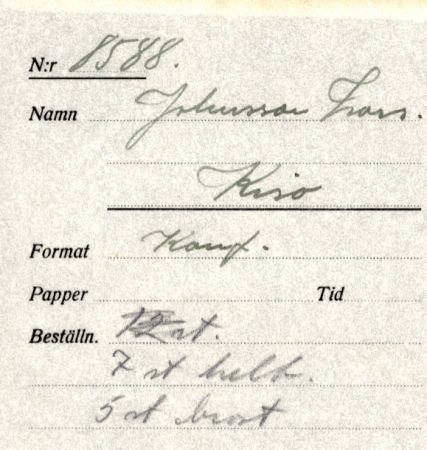 N:r 8588.
Namn Johnsson Lars.
Risö
Format Kauf.
Papper Tid
Beställn. 12 st.
7 st helb.
5 st brost